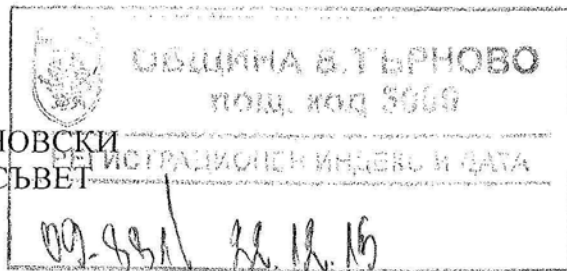 ОБЩИНА В.ТЪРНОВО
пощ. код 5000
НОВСКИ
РЕГИСТРАЦИОНЕН ИНДЕКС И ДАТА
СЪВЕТ
22.12.15